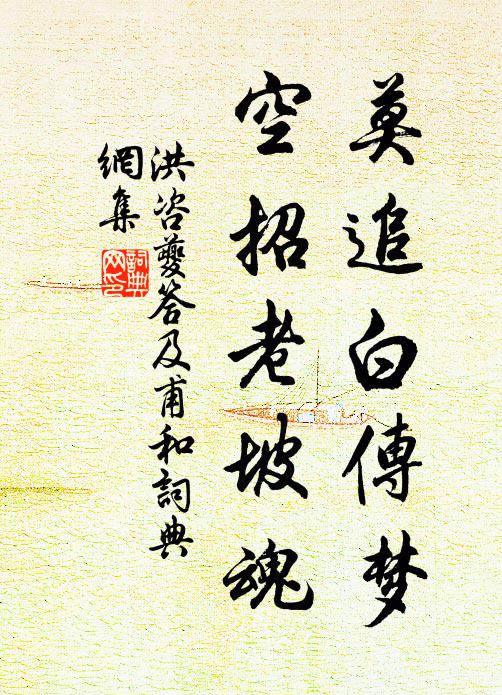 莫追白傅梦
空招老坡魂
洪咨夔答及甫和詞典
網集
詞典
网印